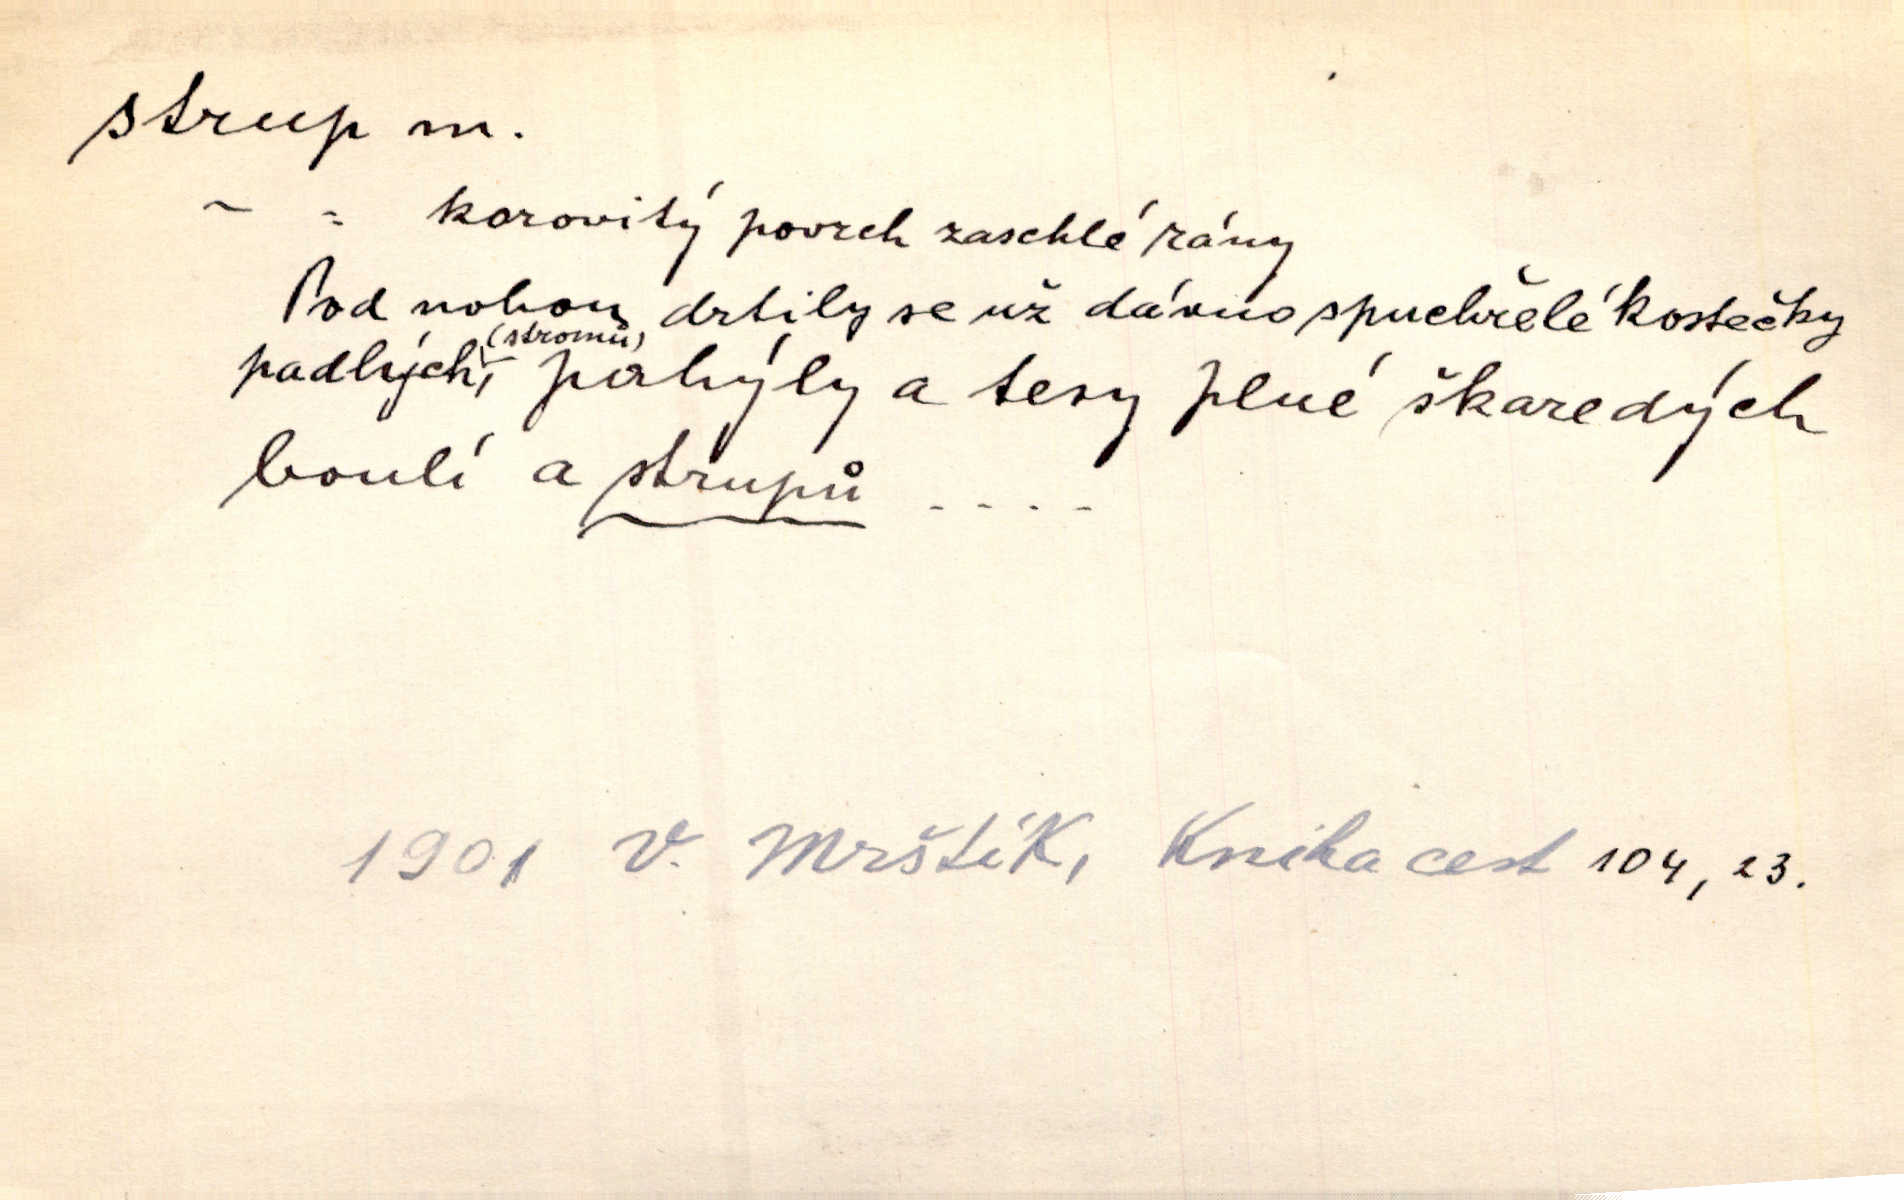 strup m.
~ = korovitý povrch zaschlé rány
Pod nohou drtily se už dávno spuchřelé kostečky
padlých (stromů), pahýly a tesy plné škaredých
boulí a strupů ....
1901 V. Mrštík, Kniha cest 104, 23.